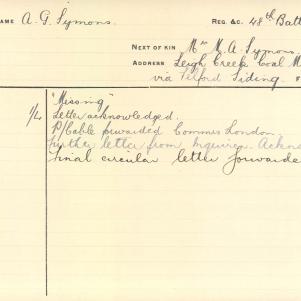 NAME A. G. Symons. REG. &C. 48th Batt
NEXT OF KIN Mrs M. A. Symons.
ADDRESS Leigh Creek Coal M
via Telford Siding.
"Missing"
1/4 Letter acknowledged.
P/Cable forwarded Commis London.
Further letter from Inquirer. Ackno
Final circular letter forwarde